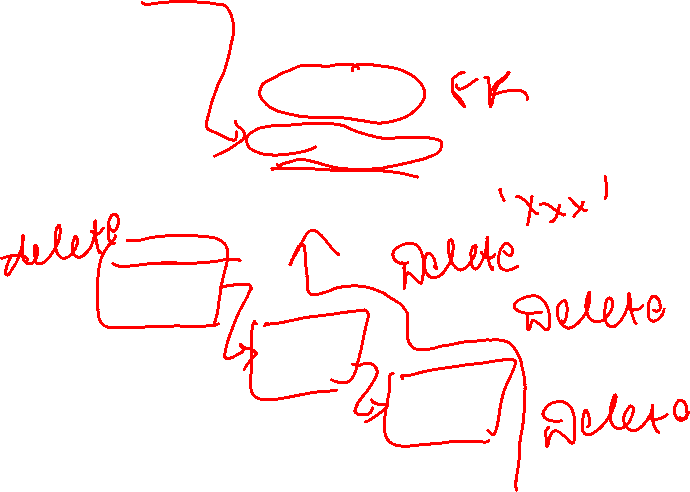 FK
'xxx'
delete
Delete
Delete
Delete